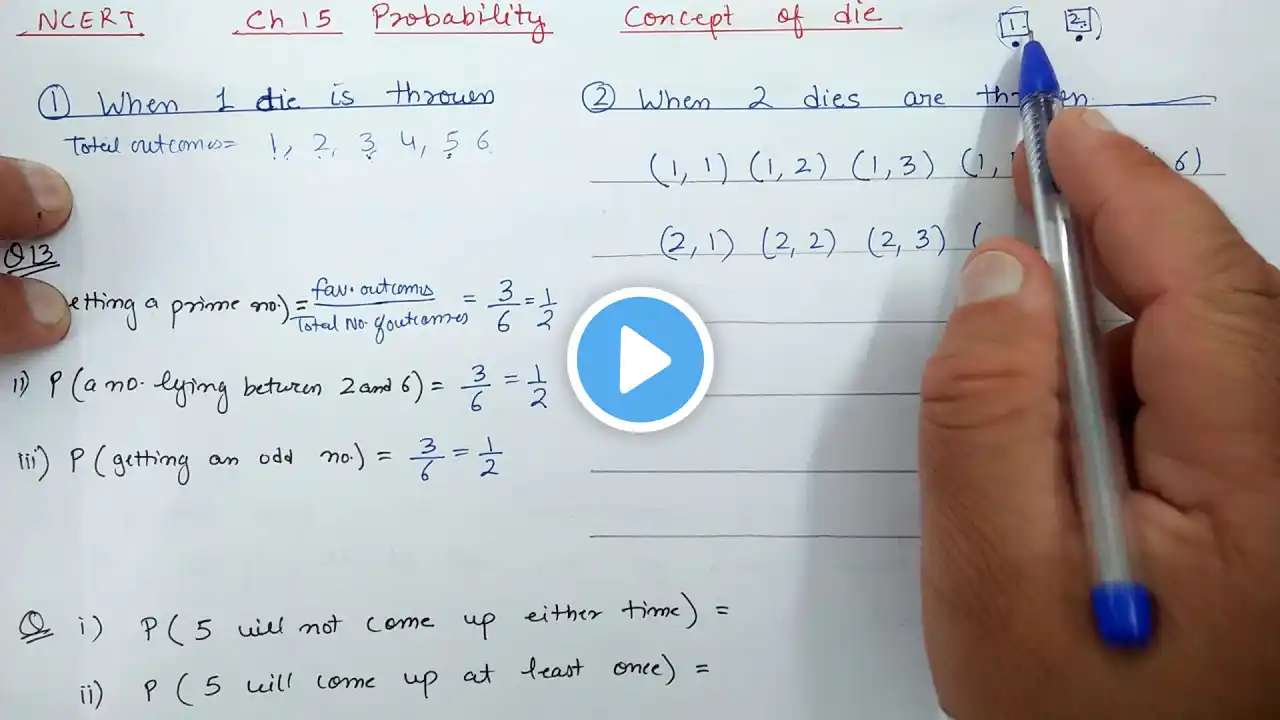 NCERT Ch 15 Probability Concept of die
1. 2..
① When 1 die is thrown
Total outcomes = 1, 2, 3, 4, 5 6
② When 2 dies are
(1, 1) (1, 2) (1, 3) (1, 6)
(2, 1) (2, 2) (2, 3) (
Q13
etting a prime no.) = fav. outcoms / Total No. of outcomes = 3/6 = 1/2
ii) P (a no. lying between 2 and 6) = 3/6 = 1/2
iii) P (getting an odd no.) = 3/6 = 1/2
Q i) P ( 5 will not come up either time) =
ii) P ( 5 will come up at least once) =